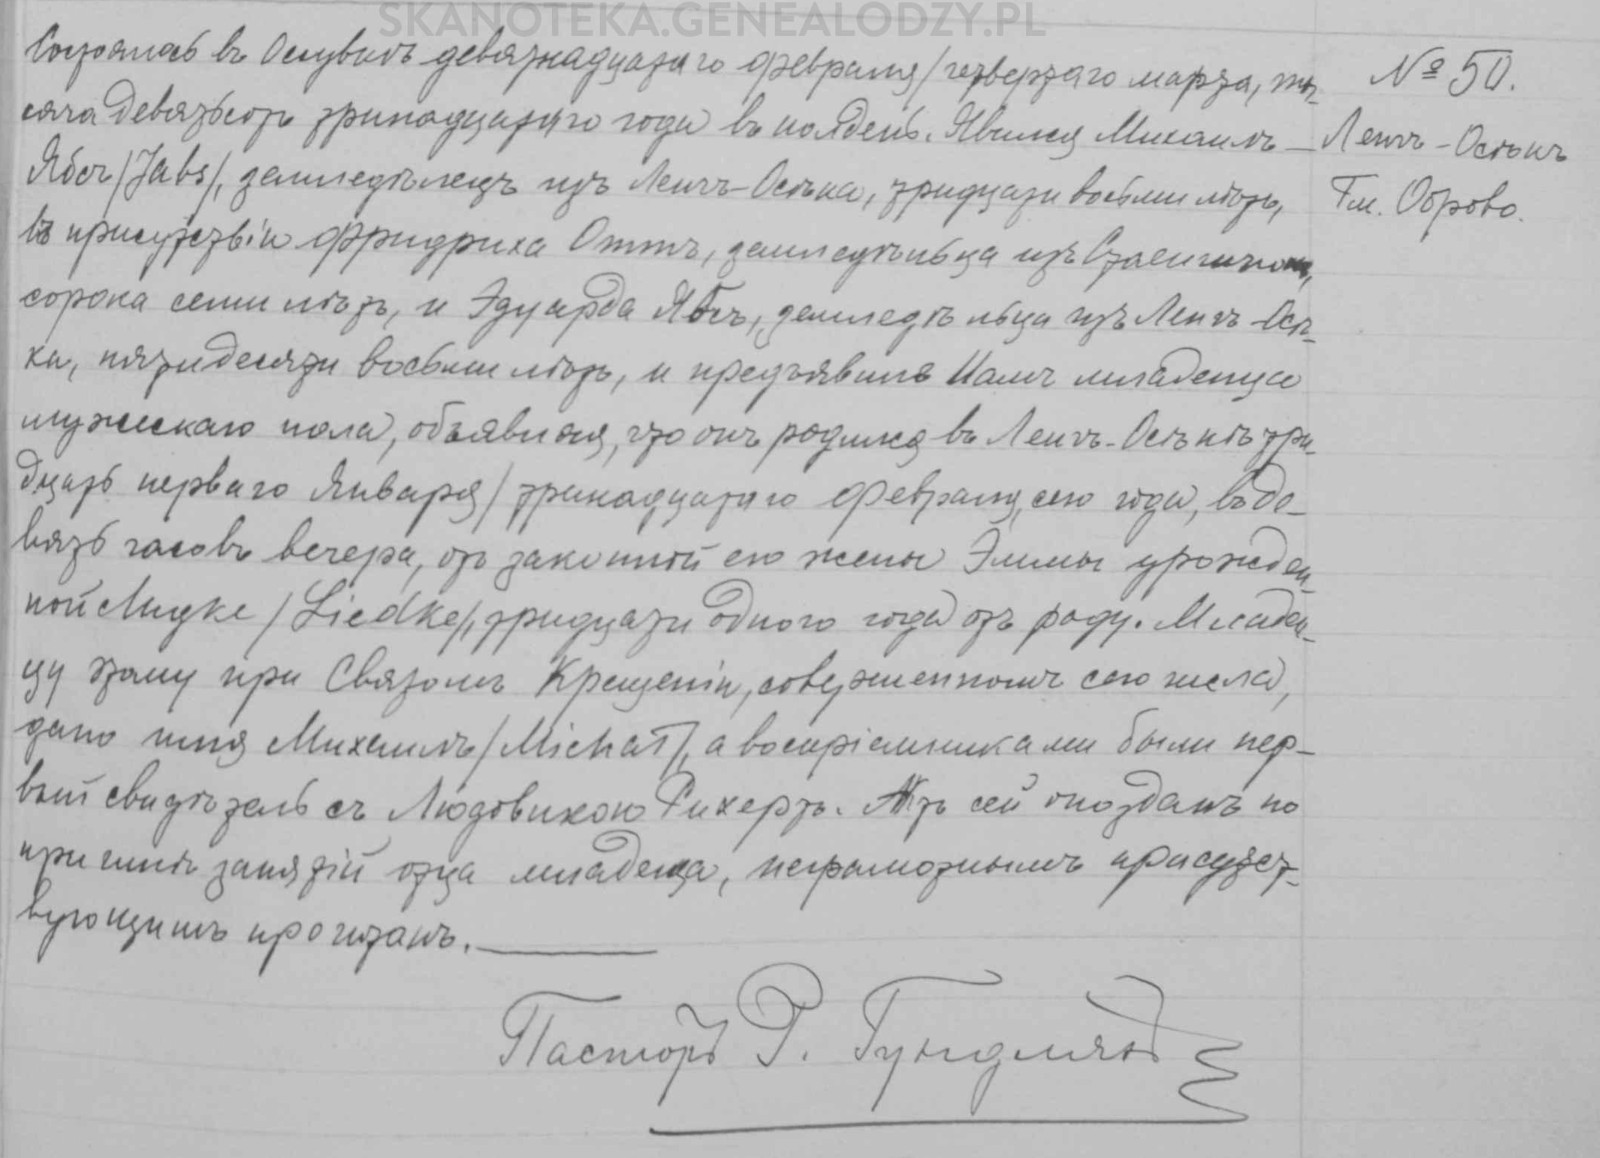 SKANOTEKA.GENEALODZY.PL
Состоялось въ Ословѣ девятнадцатаго февраля/четвертаго марта, ты-
сяча девятьсотъ тринадцатаго года въ полдень. Явился Михаилъ
Ябсъ /Jabs/, земледѣлецъ изъ Ленгъ-Осѣка, тридцати восьми лѣтъ,
въ присутствіи Фридриха Оттъ, земледѣльца изъ
сорока семи лѣтъ, и Эдуарда Ябсъ, земледѣльца изъ Ленгъ-Осѣ-
ка, пятидесяти восьми лѣтъ, и предъявилъ Намъ младенца
мужескаго пола, объявляя, что онъ родился въ Ленгъ-Осѣкѣ три-
дцать перваго Января/тринадцатаго февраля, сего года, въ де-
вять часовъ вечера, отъ законной его жены Эммы урожден-
ной Лидке /Liedke/, тридцати одного года отъ роду. Младен-
цу этому при Святомъ Крещеніи, совершенномъ сего числа,
дано имя Михаилъ /Michał/, а воспріемниками были пер-
вый свидѣтель съ Людовикою Рихертъ. Актъ сей опозданъ по
причинѣ занятій отца младенца, неграмотнымъ присутст-
вующимъ прочитанъ.
Пасторъ Р. Гундляхъ
№ 50.
Ленгъ-Осѣкъ
Гм. Оброво.